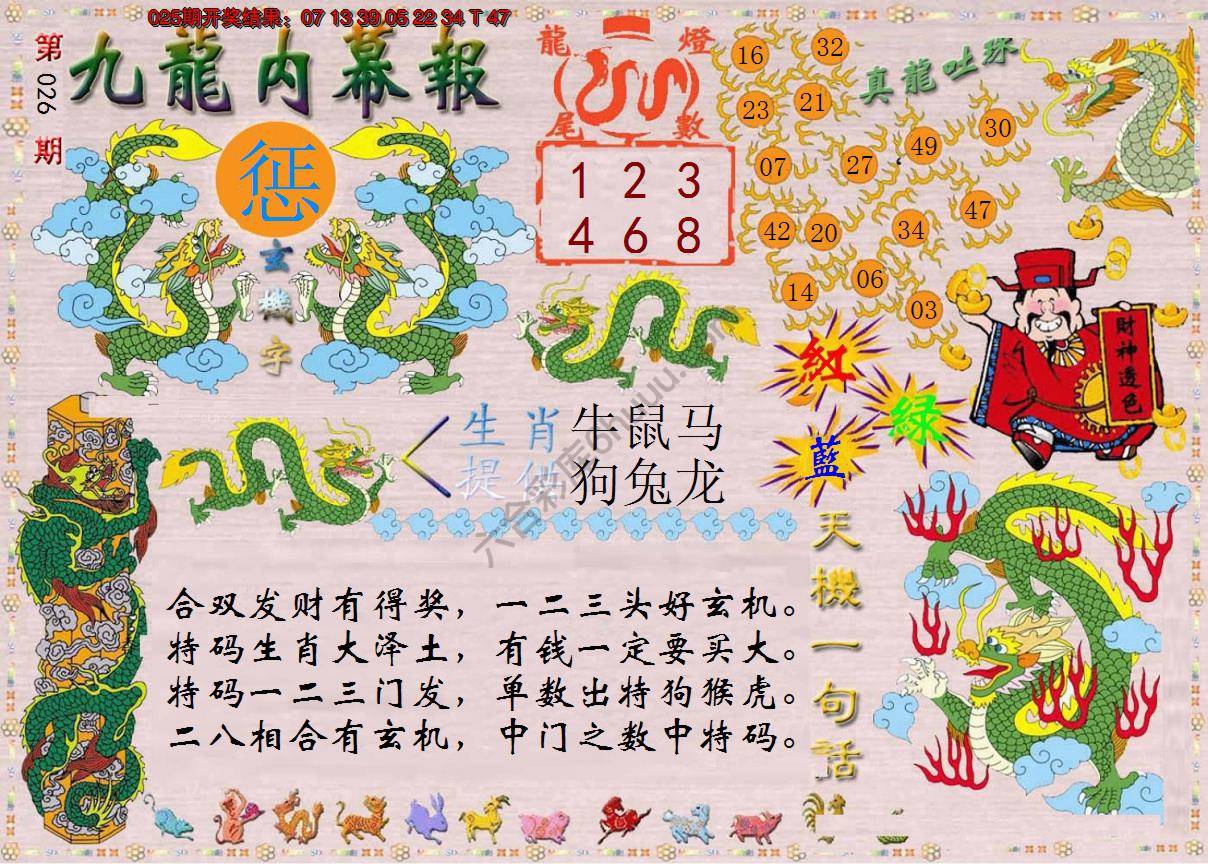 025期开奖结果：07 13 39 05 22 34 T 47
第026期
九龍内幕報
惩
玄機字
龍燈
尾數
1 2 3
4 6 8
真龍吐珠
16
32
23
21
07
27
49
30
42
20
34
47
14
06
03
財神透色
紅
綠
藍
生肖
提供
牛鼠马
狗兔龙
六合彩库
合双发财有得奖，一二三头好玄机。
特码生肖大泽土，有钱一定要买大。
特码一二三门发，单数出特狗猴虎。
二八相合有玄机，中门之数中特码。
天機一句話